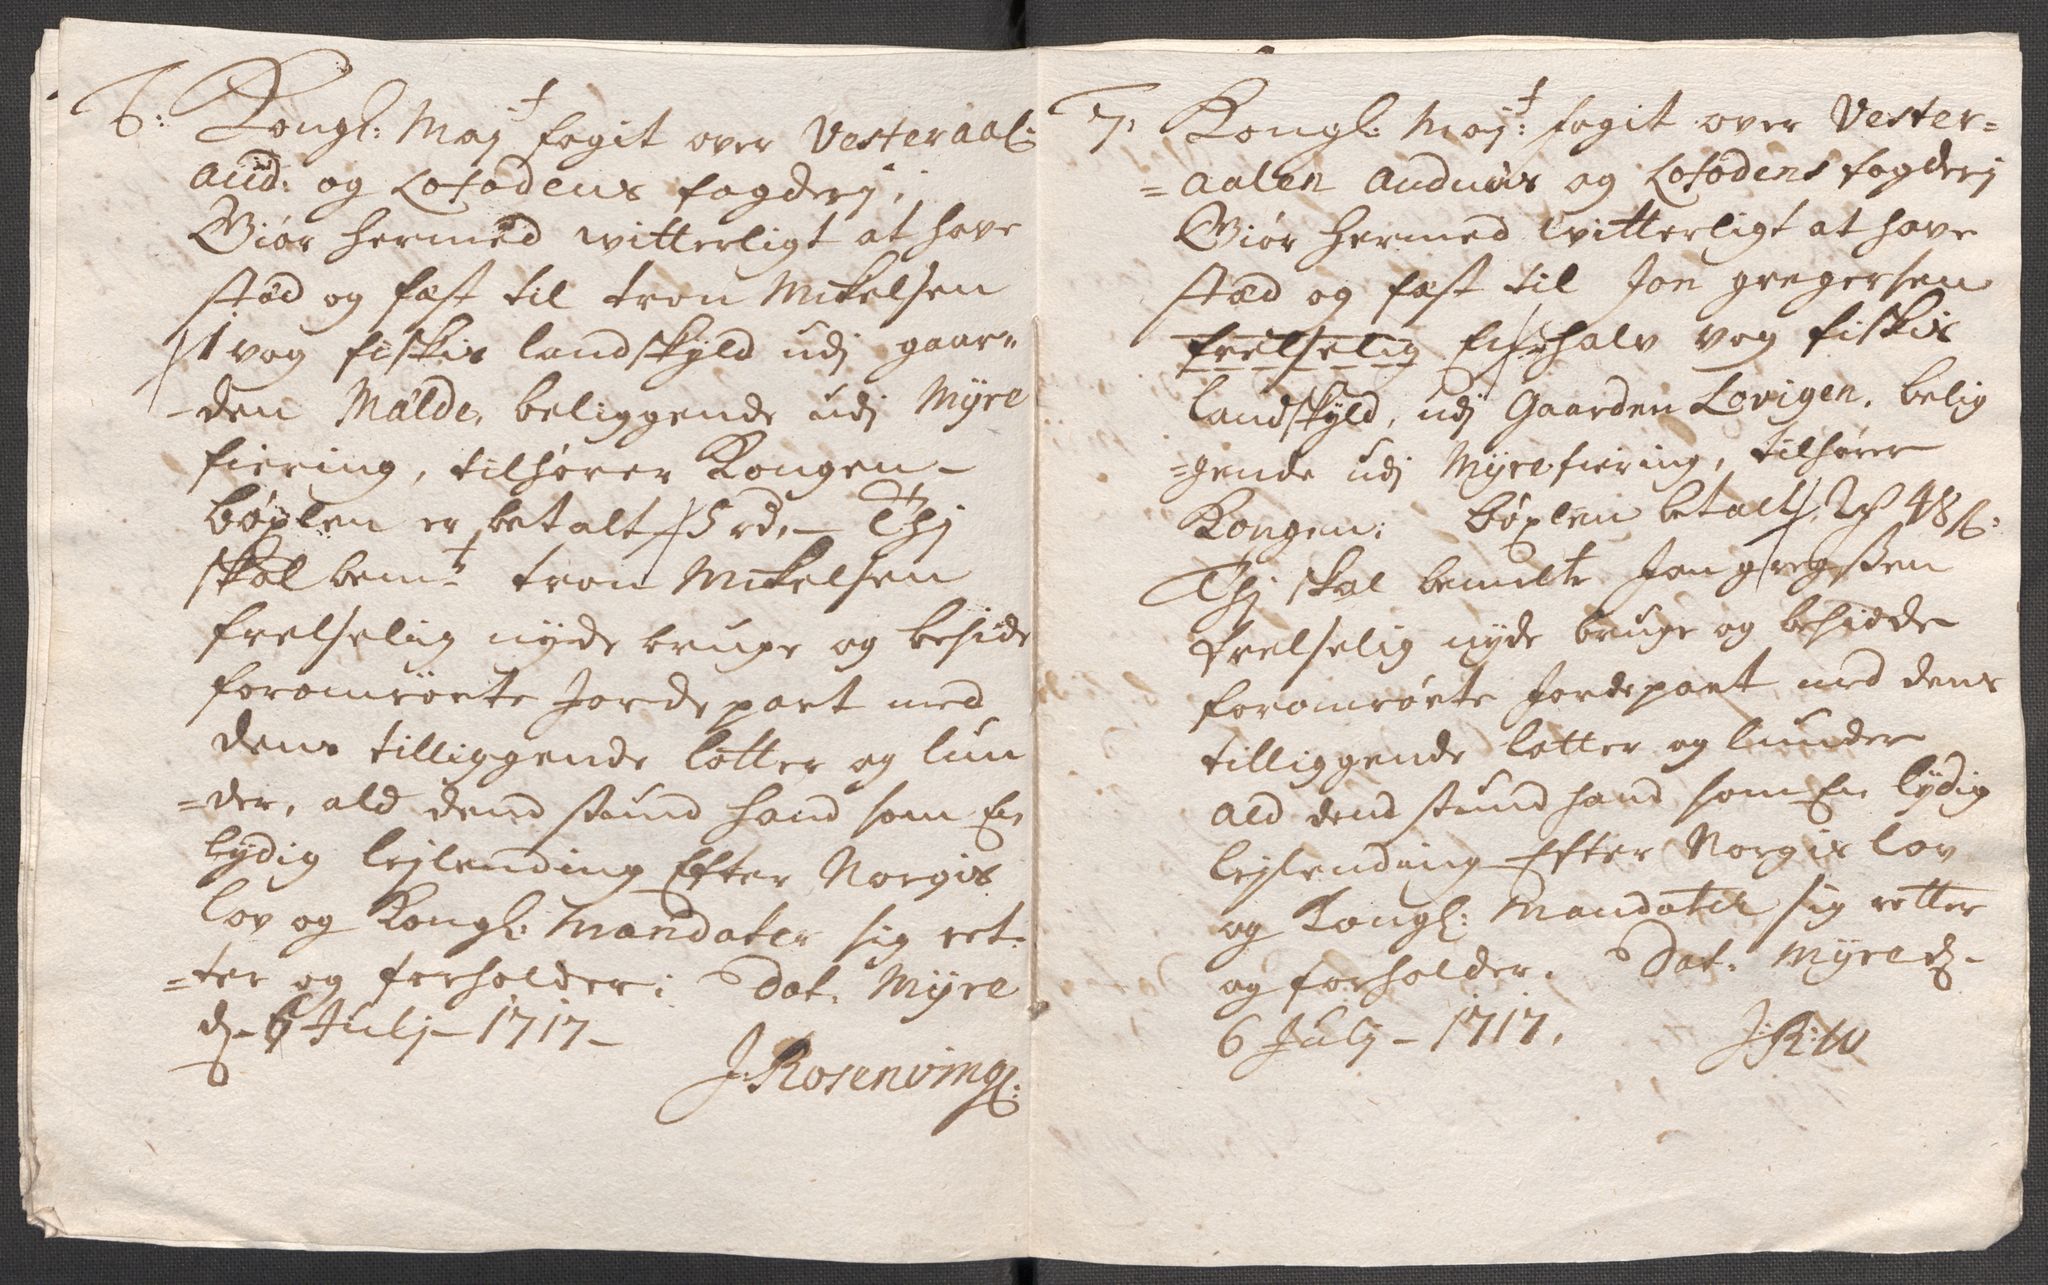 6: Kongl: Maj:t fogit over Vesteraal:
And: og Lofodens fogderj;
Giør hermed witterligt at have
stød og fæst til tron Mikelsen
1 vog fiskis landskyld udj gaar-
-den Målde, beliggende udj Myre
fiering, tilhører Kongen-
bøxlen er betalt 5 rd,- Thj
skal bem:te tron Mikelsen
frelselig nyde bruge og beside
foromrørte Jordepart med
dens tilliggende lotter og lun
=der, ald dend stund hand som En
lydig lejlending Efter Norgis
lov og Kongl: Mandater sig ret-
=ter og forholder; Dat. Myre
d- 6 Julj- 1717-
J: Rosenving:
7, Kongl: Maj:t fogit over Vester=
=aalen Andnæs og Lofodens fogderj
Giør hermed witterligt at have
stæd og fæst til Jon gregersen
frelselig En halv vog fiskis
landskyld, udj Gaarden Lovigen, belig
=gende udj Myre fiering, tilhører
Kongen; bøxlen betalt, 2 48 ß:
Thj skal bemelte Jon gregersen
frelselig nyde bruge og besidde
foromrørte Jordepart med dens
tilliggende lotter og lunder
ald dend stund hand som En lydig
lejlending Efter Norgis lov
og Kongl: Mandater sig retter
og forholder. Dat. Myre d-
6 Julj- 1717,
J:R:W